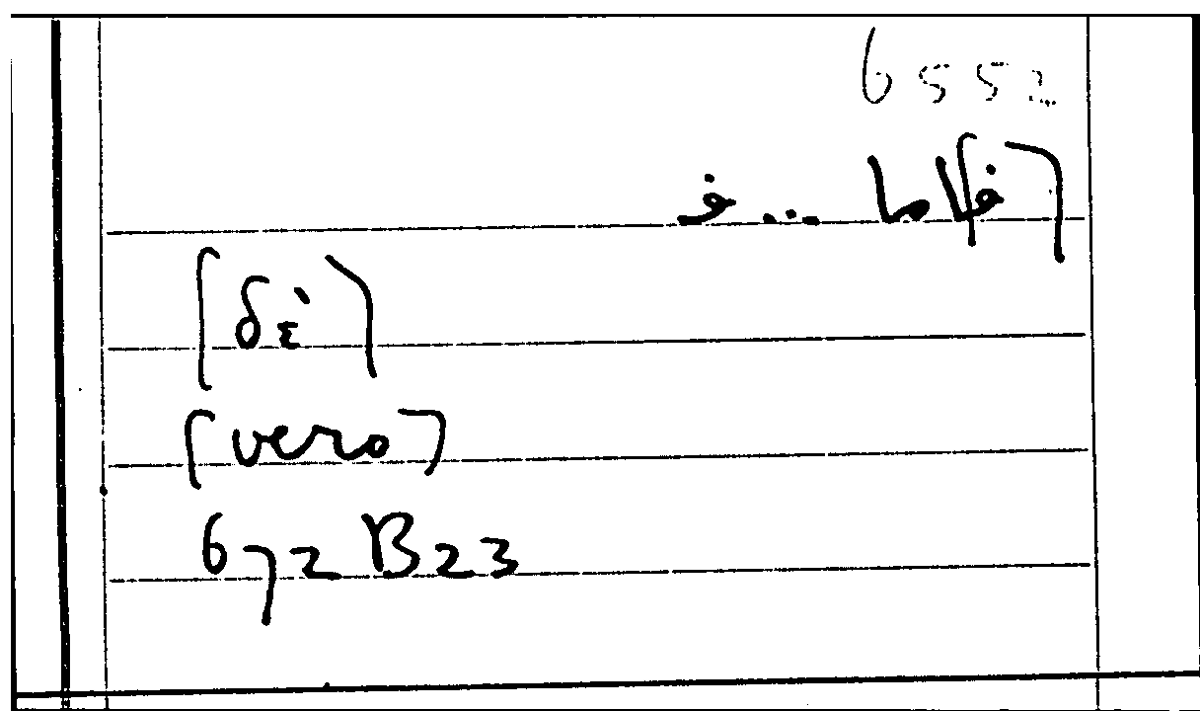 6552
[ف]اما ... ف
[δὲ]
[vero]
672 B23